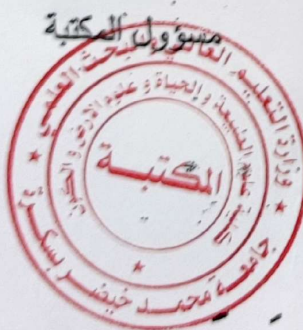 مسؤول المكتبة
وزارة التعليم العالي والبحث العلمي
كلية علوم الطبيعة والحياة وعلوم الأرض والكون
المكتبة
جامعة محمد خيضر بسكرة